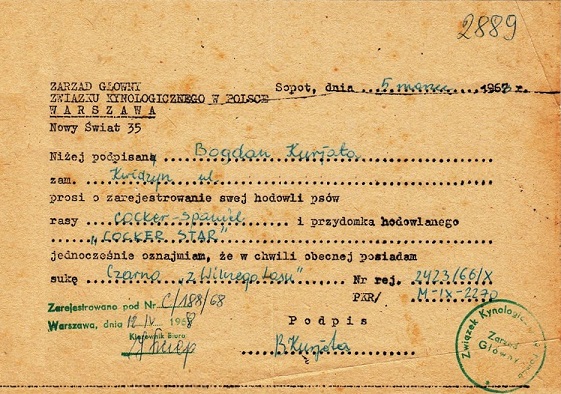 2889
ZARZAD GŁOWNY
ZWIĄZKU KYNOLOGICZNEGO W POLSCE
WARSZAWA
Nowy Świat 35
Sopot, dnia ...5 marzec......196
Niżej podpisany Bogdan Kurjata
zam. Kwidzyn ul
prosi o zarejestrowanie swej hodowli psów
rasy cocker-spaniel i przydomka hodowlanego
"COCKER STAR"
jednocześnie oznajmiam, że w chwili obecnej posiadam
sukę Czarna "z Wilczego Lasu" Nr rej. 2423/66/X
PKR/ M-IX-2270
Zarejestrowano pod Nr C/188/68
Warszawa, dnia 12/IV 1968
Kierownik Biura
Podpis
B Kurjata
Związek Kynologiczny
Zarząd
Główny